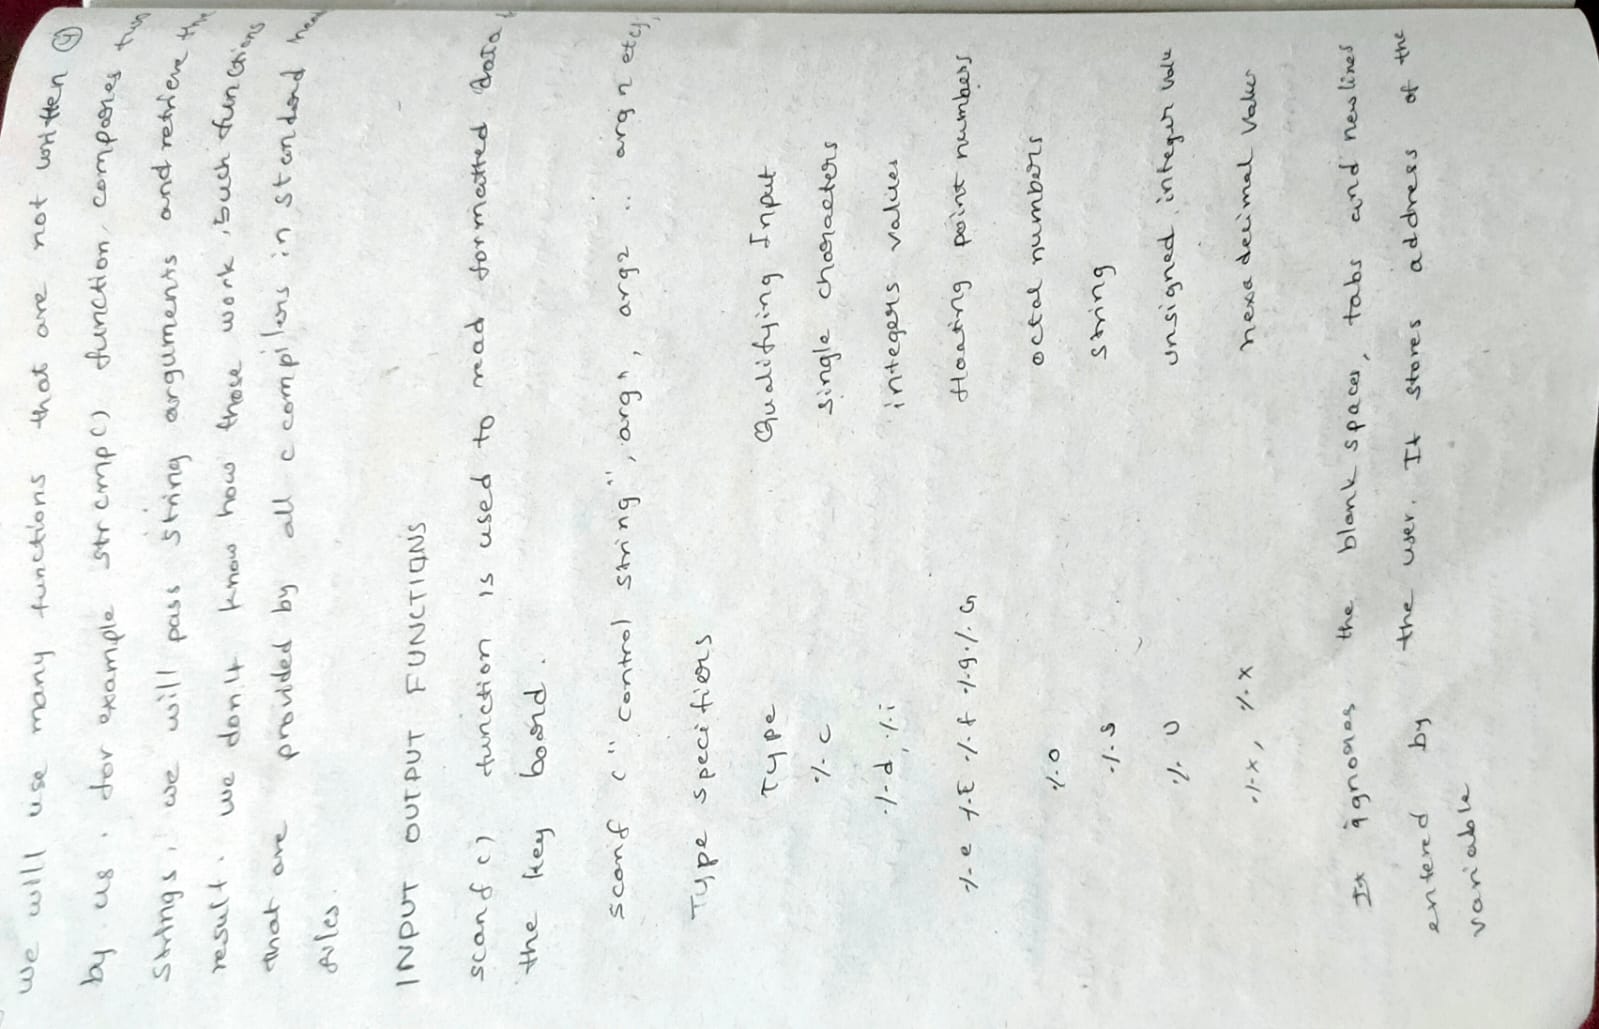 4
we will use many functions that are not written
by us. for example strcmp() function, compares two
strings, we will pass string arguments and retrieve the
result. we don't know how those work, such functions
that are provided by all c compilers in standard
files.
INPUT OUTPUT FUNCTIONS
scanf() function is used to read formatted data
the key board.
scanf (" control string", arg1, arg2 .. arg n etc);
Type specifiers
Type Qualifying Input
%c single characters
%d, %i integers values
%e %E %f %g %G floating point numbers
%o octal numbers
%s string
%u unsigned integer value
%x, %X hexa decimal value
It ignores the blank spaces, tabs and newlines
entered by the user. It stores address of the
variable